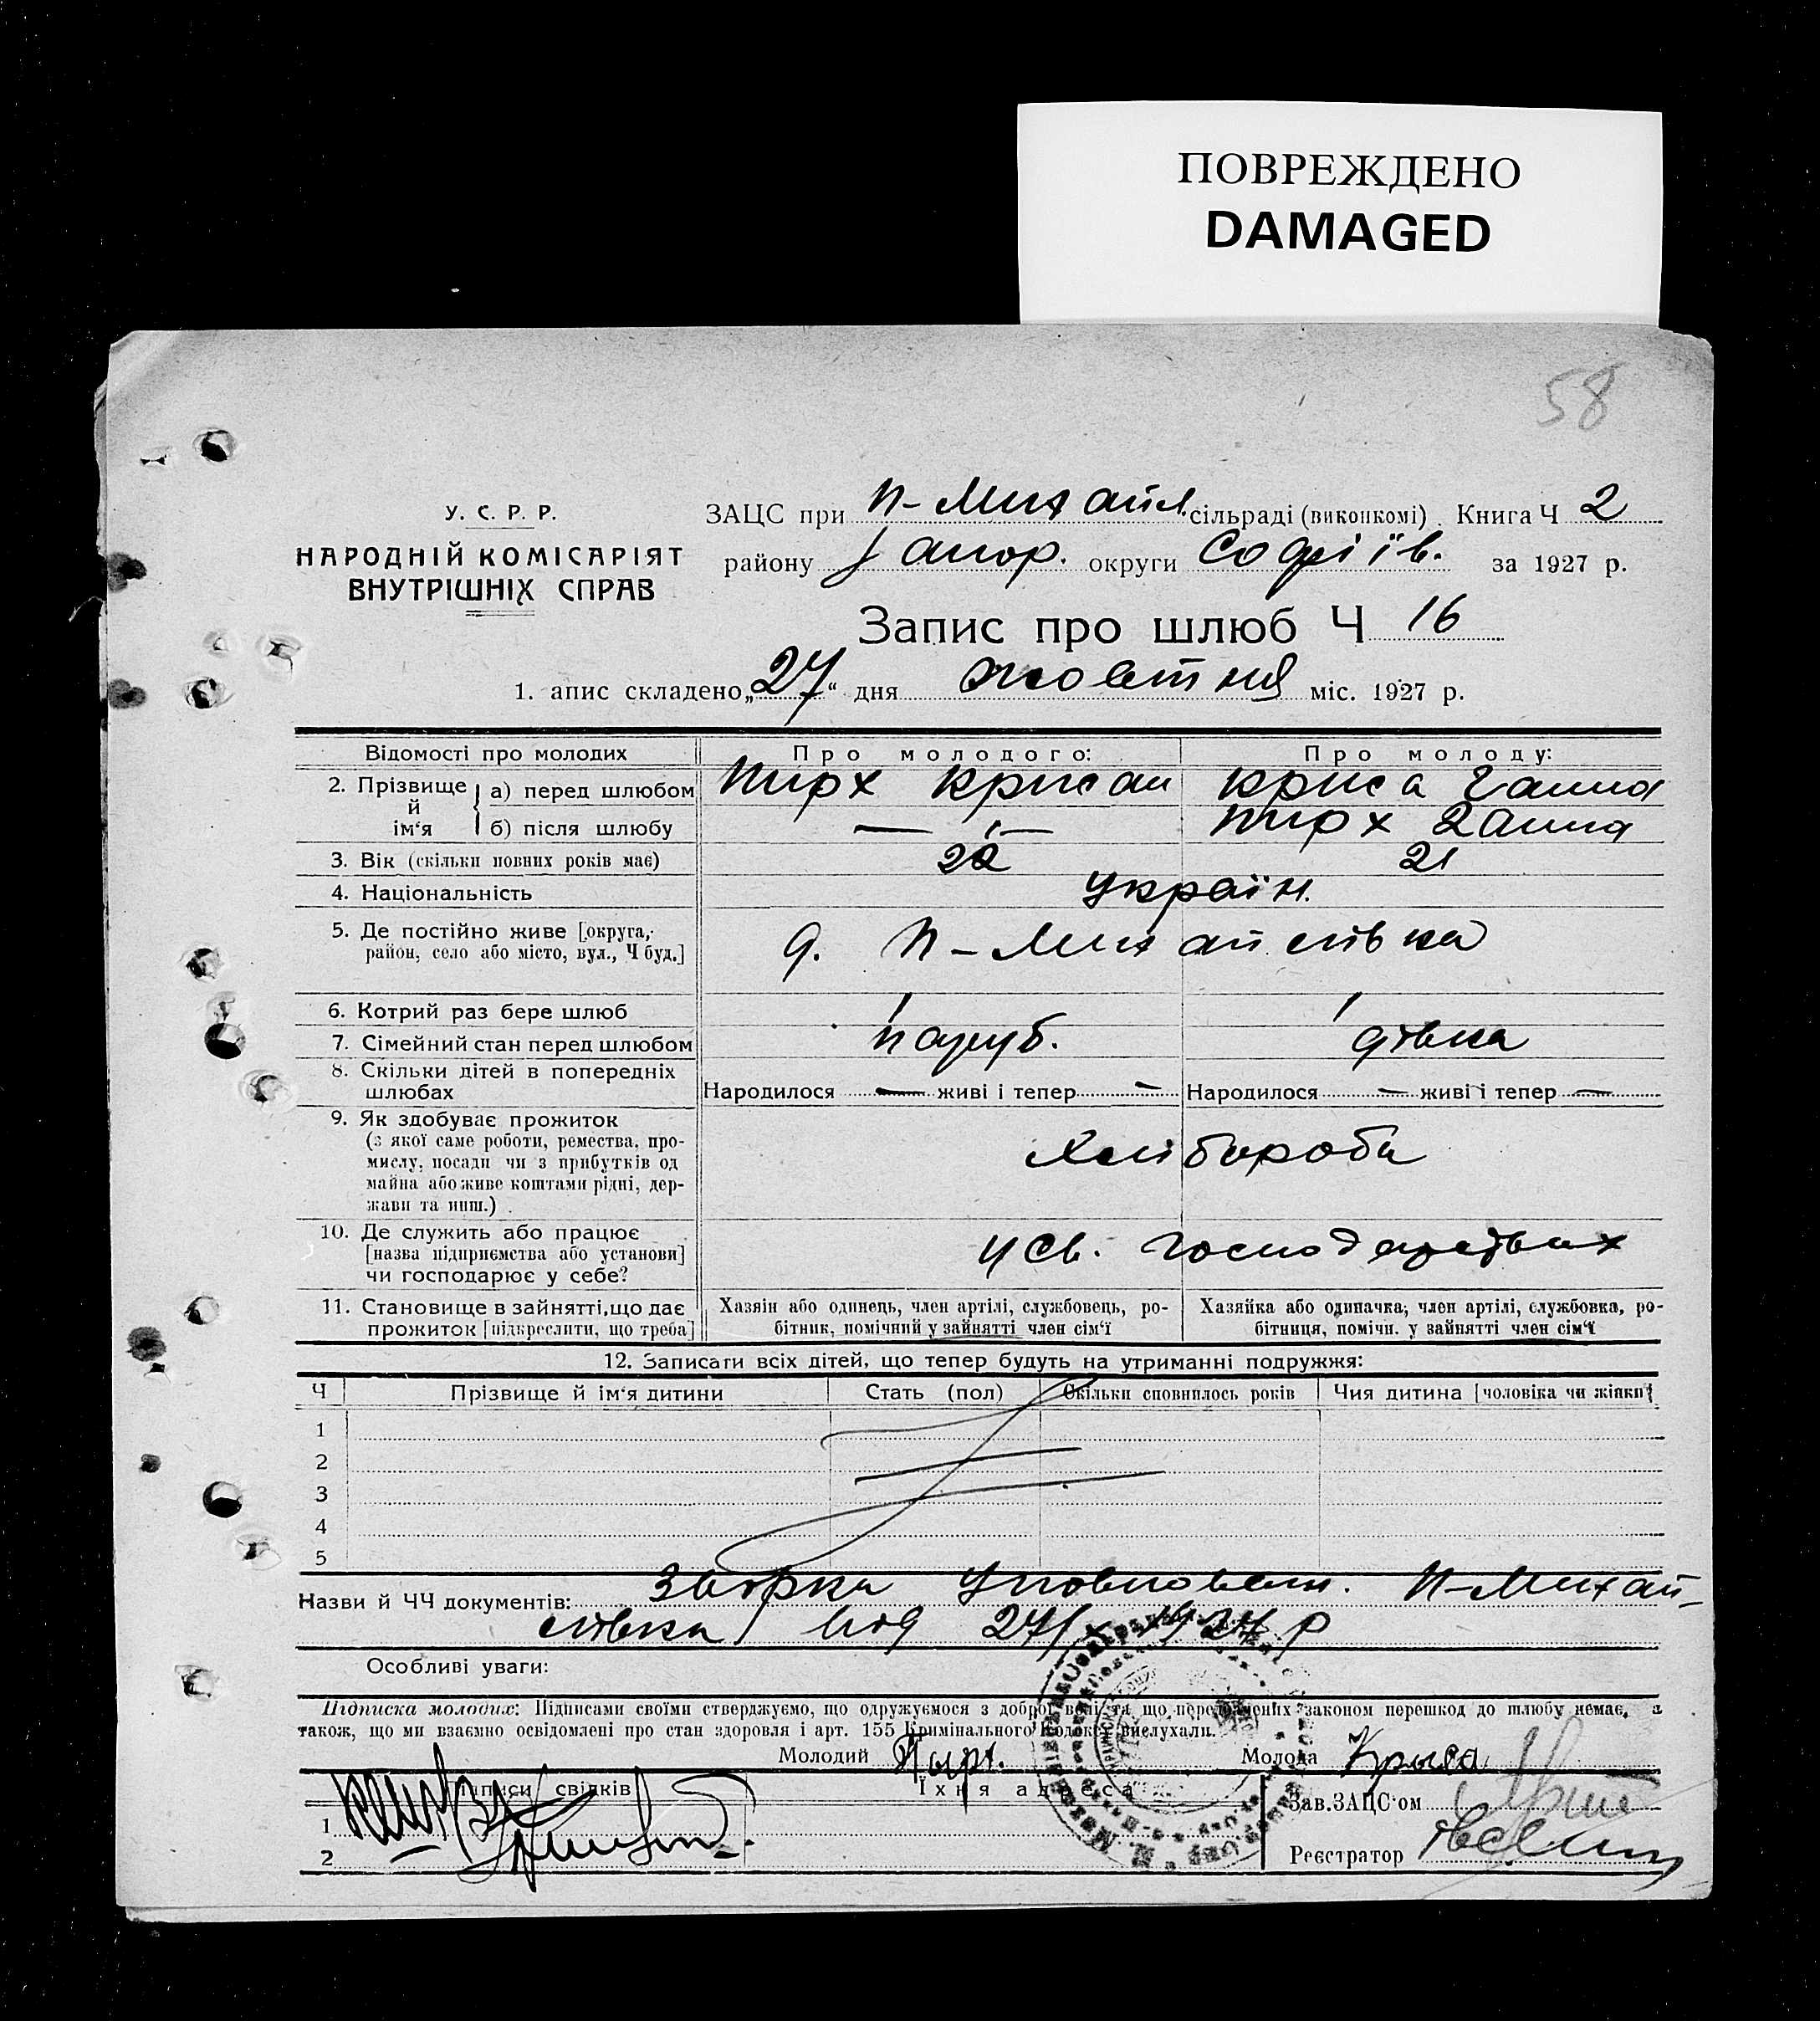 ПОВРЕЖДЕНО
DAMAGED
58
У. С. Р. Р.
НАРОДНІЙ КОМІСАРІЯТ
ВНУТРІШНІХ СПРАВ
ЗАЦС при П-Михайл. сільраді (виконкомі). Книга Ч 2
району Запор. округи Софіїв. за 1927 р.
Запис про шлюб Ч 16
1. апис складено „27“ дня жовтня міс. 1927 р.
Відомості про молодих Про молодого: Про молоду:
2. Прізвище й ім‘я а) перед шлюбом Пирх Крисан Криса Ганна
б) після шлюбу — „ — Пирх Ганна
3. Вік (скільки повних років має) 22 21
4. Національність Україн.
5. Де постійно живе [округа, район, село або місто, вул., Ч буд.] д. П-Михайлівка
6. Котрий раз бере шлюб 1 1
7. Сімейний стан перед шлюбом паруб. дівка
8. Скільки дітей в попередніх шлюбах Народилося — живі і тепер — Народилося — живі і тепер —
9. Як здобуває прожиток
(з якої саме роботи, ремества, про-
мислу, посади чи з прибутків од
майна або живе коштами рідні, дер-
жави та инш.)
Хлібороби
10. Де служить або працює
[назва підприємства або установи]
чи господарює у себе?
у св. господарствах
11. Становище в зайнятті, що дає прожиток [підкреслити, що треба]
Хазяїн або одинець, член артілі, службовець, ро-
бітник, помічний у зайнятті член сім‘ї
Хазяйка або одиначка, член артілі, службовка, ро-
бітниця, помічн. у зайнятті член сім‘ї
12. Записати всіх дітей, що тепер будуть на утриманні подружжя:
Ч Прізвище й ім‘я дитини Стать (пол) Скільки сповнилось років Чия дитина [чоловіка чи жінки]
1
2
3
4
5
Назви й ЧЧ документів: П-Михай-
лівка від 27/X 1927 р
Особливі уваги:
Підписка молодих: Підписами своїми стверджуємо, що одружуємося з доброї волі та що передбачених законом перешкод до шлюбу немає, а
також, що ми взаємно освідомлені про стан здоровля і арт. 155 Кримінального Кодексу вислухали.
Молодий Пырх. Молода Крыса
Підписи свідків Їхня адреса Зав. ЗАЦС‘ом
1
2 Реєстратор